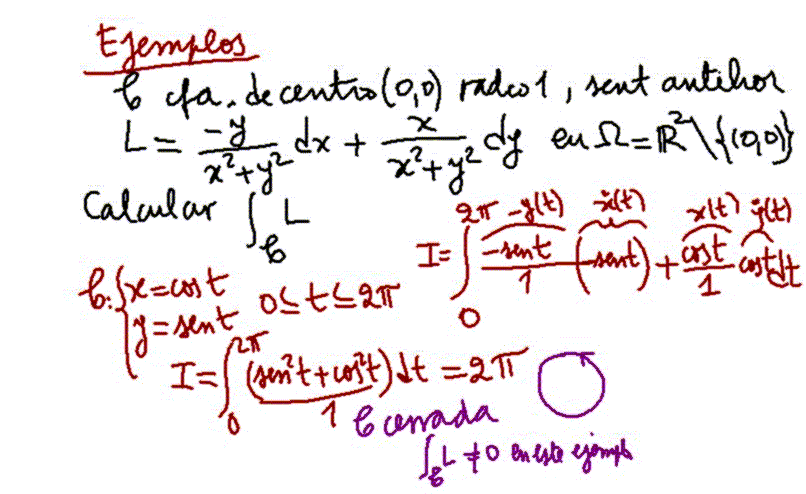 Ejemplos
C cfa. de centro (0,0) radio 1, sent antihor
L = -y/(x²+y²) dx + x/(x²+y²) dy en Ω = ℝ² \ {(0,0)}
Calcular ∫_C L
I = ∫_0^{2π} -sent/1 (-sent) + cost/1 cost dt
-y(t) ẋ(t) x(t) ẏ(t)
C: { x = cost
y = sent
0 ≤ t ≤ 2π
I = ∫_0^{2π} (sen²t + cos²t) dt = 2π
1
C cerrada
∫_C L ≠ 0 en este ejempl